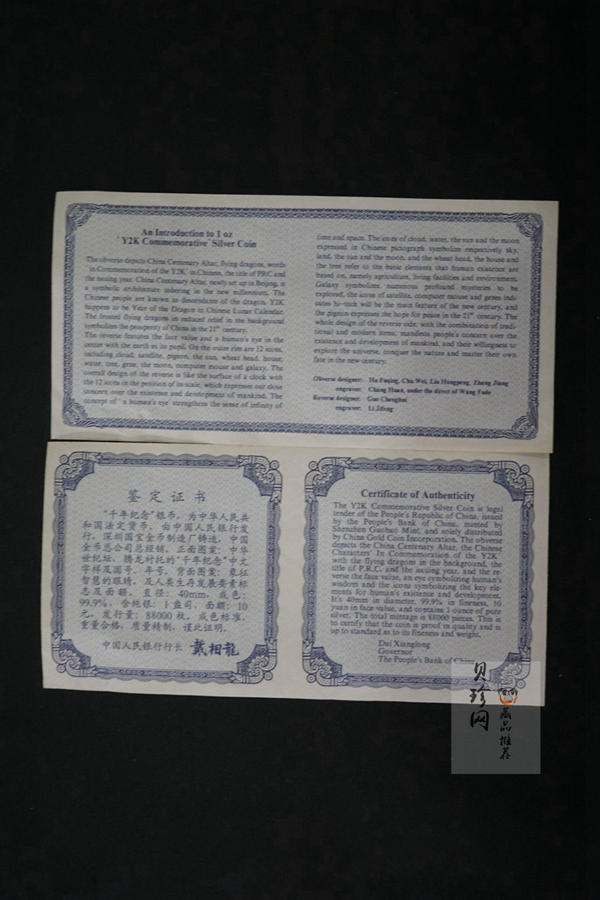 An Introduction to 1 oz
'Y2K Commemorative' Silver Coin
The obverse depicts China Centenary Altar, flying dragons, words
'in Commemoration of the Y2K' in Chinese, the title of P.R.C and
the issuing year. China Centenary Altar, newly set up in Beijing, is
a symbolic architecture ushering in the new millennium. The
Chinese people are known as descendants of the dragon. Y2K
happens to be Year of the Dragon in Chinese Lunar Calendar.
The frosted flying dragons in reduced relief in the background
symbolizes the prosperity of China in the 21st century.
The reverse features the face value and a human's eye in the
center with the earth as its pupil. On the outer rim are 12 icons,
including cloud, satellite, pigeon, the sun, wheat head, house,
water, tree, gene, the moon, computer mouse and galaxy. The
overall design of the reverse is like the surface of a clock with
the 12 icons in the position of its scale, which expresses our close
concern over the existence and development of mankind. The
concept of "a human's eye" strengthens the sense of infinity of
time and space. The icons of cloud, water, the sun and the moon
expressed in Chinese pictograph symbolism respectively sky,
land, the sun and the moon, and the wheat head, the house and
the tree refer to the basic elements that human existence are
based on, namely agriculture, living facilities and environment.
Galaxy symbolizes numerous profound mysteries to be
explored, the icons of satellite, computer mouse and genes indi-
cates hi-tech will be the main feature of the new century, and
the pigeon expresses the hope for peace in the 21st century. The
whole design of the reverse side, with the combination of tradi-
tional and modern icons, manifests people's concern over the
existence and development of mankind, and their willingness to
explore the universe, conquer the nature and master their own
fate in the new century.
Obverse designer: Hu Fuqing, Chu Wei, Liu Hongpeng, Zheng Jiang
engraver: Chang Huan, under the direct of Wang Fude
Reverse designer: Guo Chenghui
engraver: Li Jifeng
鉴定证书
“千年纪念”银币,为中华人民共
和国法定货币,由中国人民银行发
行,深圳国宝金币制造厂铸造,中国
金币总公司总经销。正面图案:中华
世纪坛、腾龙衬托的“千年纪念”中文
字样及国号、年号。背面图案:象征
智慧的眼睛,及人类生存发展要素标
志及面额。直径:40mm,成色:
99.9%,含纯银:1盎司,面额:10
元,发行量:88000枚。成色标准,
重量合格,质量精制,谨此证明。
中国人民银行行长 戴相龍
Certificate of Authenticity
The Y2K Commemorative Silver Coin is legal
tender of the People's Republic of China, issued
by the People's Bank of China, minted by
Shenzhen Guobao Mint, and solely distributed
by China Gold Coin Incorporation. The obverse
depicts the China Centenary Altar, the Chinese
Characters 'In Commemoration of the Y2K'
with the flying dragons in the background, the
title of P.R.C, and the issuing year, and the re-
verse the face value, an eye symbolizing human's
wisdom and the icons symbolizing the key ele-
ments for human's existence and development.
It's 40mm in diameter, 99.9% in fineness, 10
yuan in face value, and contains 1 ounce of pure
silver. The total mintage is 88000 pieces. This is
to certify that the coin is proof in quality and is
up to standard as to its fineness and weight.
Dai Xianglong
Governor
The People's Bank of China
贝珍网
藏品推荐